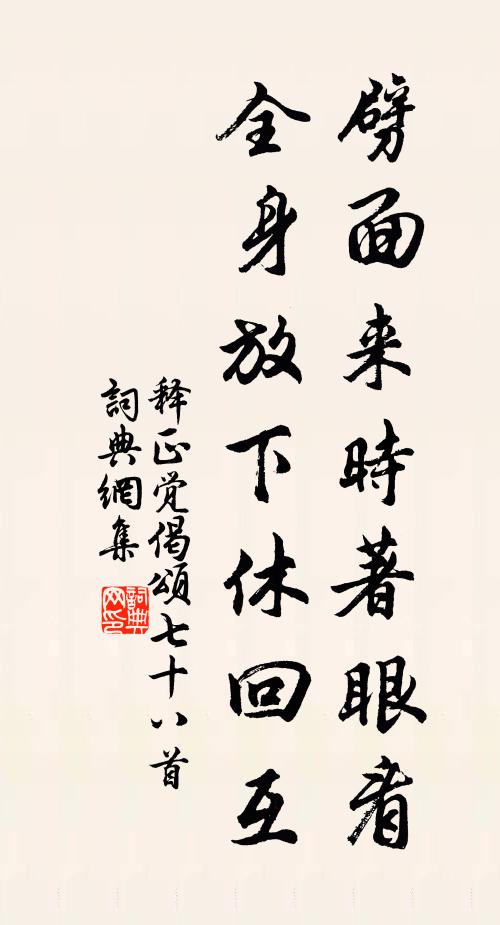 劈面来時著眼看
全身放下休回互
释正觉偈頌七十八首
詞典網集
詞典网印